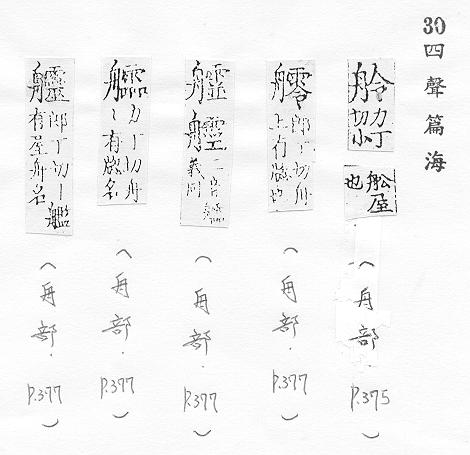 30四聲篇海
舲力丁切小舩屋也(舟部.P.375)
郎丁切舟上有牎也(舟部.P.377)
二音義同(舟部.P.377)
力丁切舟丶有牎名(舟部.P.377)
郎丁切丨有屋舟名(舟部.P.377)